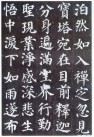 泊然如入禪定忽見
寶塔宛在目前釋迦
分身遍滿空界行勤
聖現業淨感深悲生
悟中淚下如雨遂布